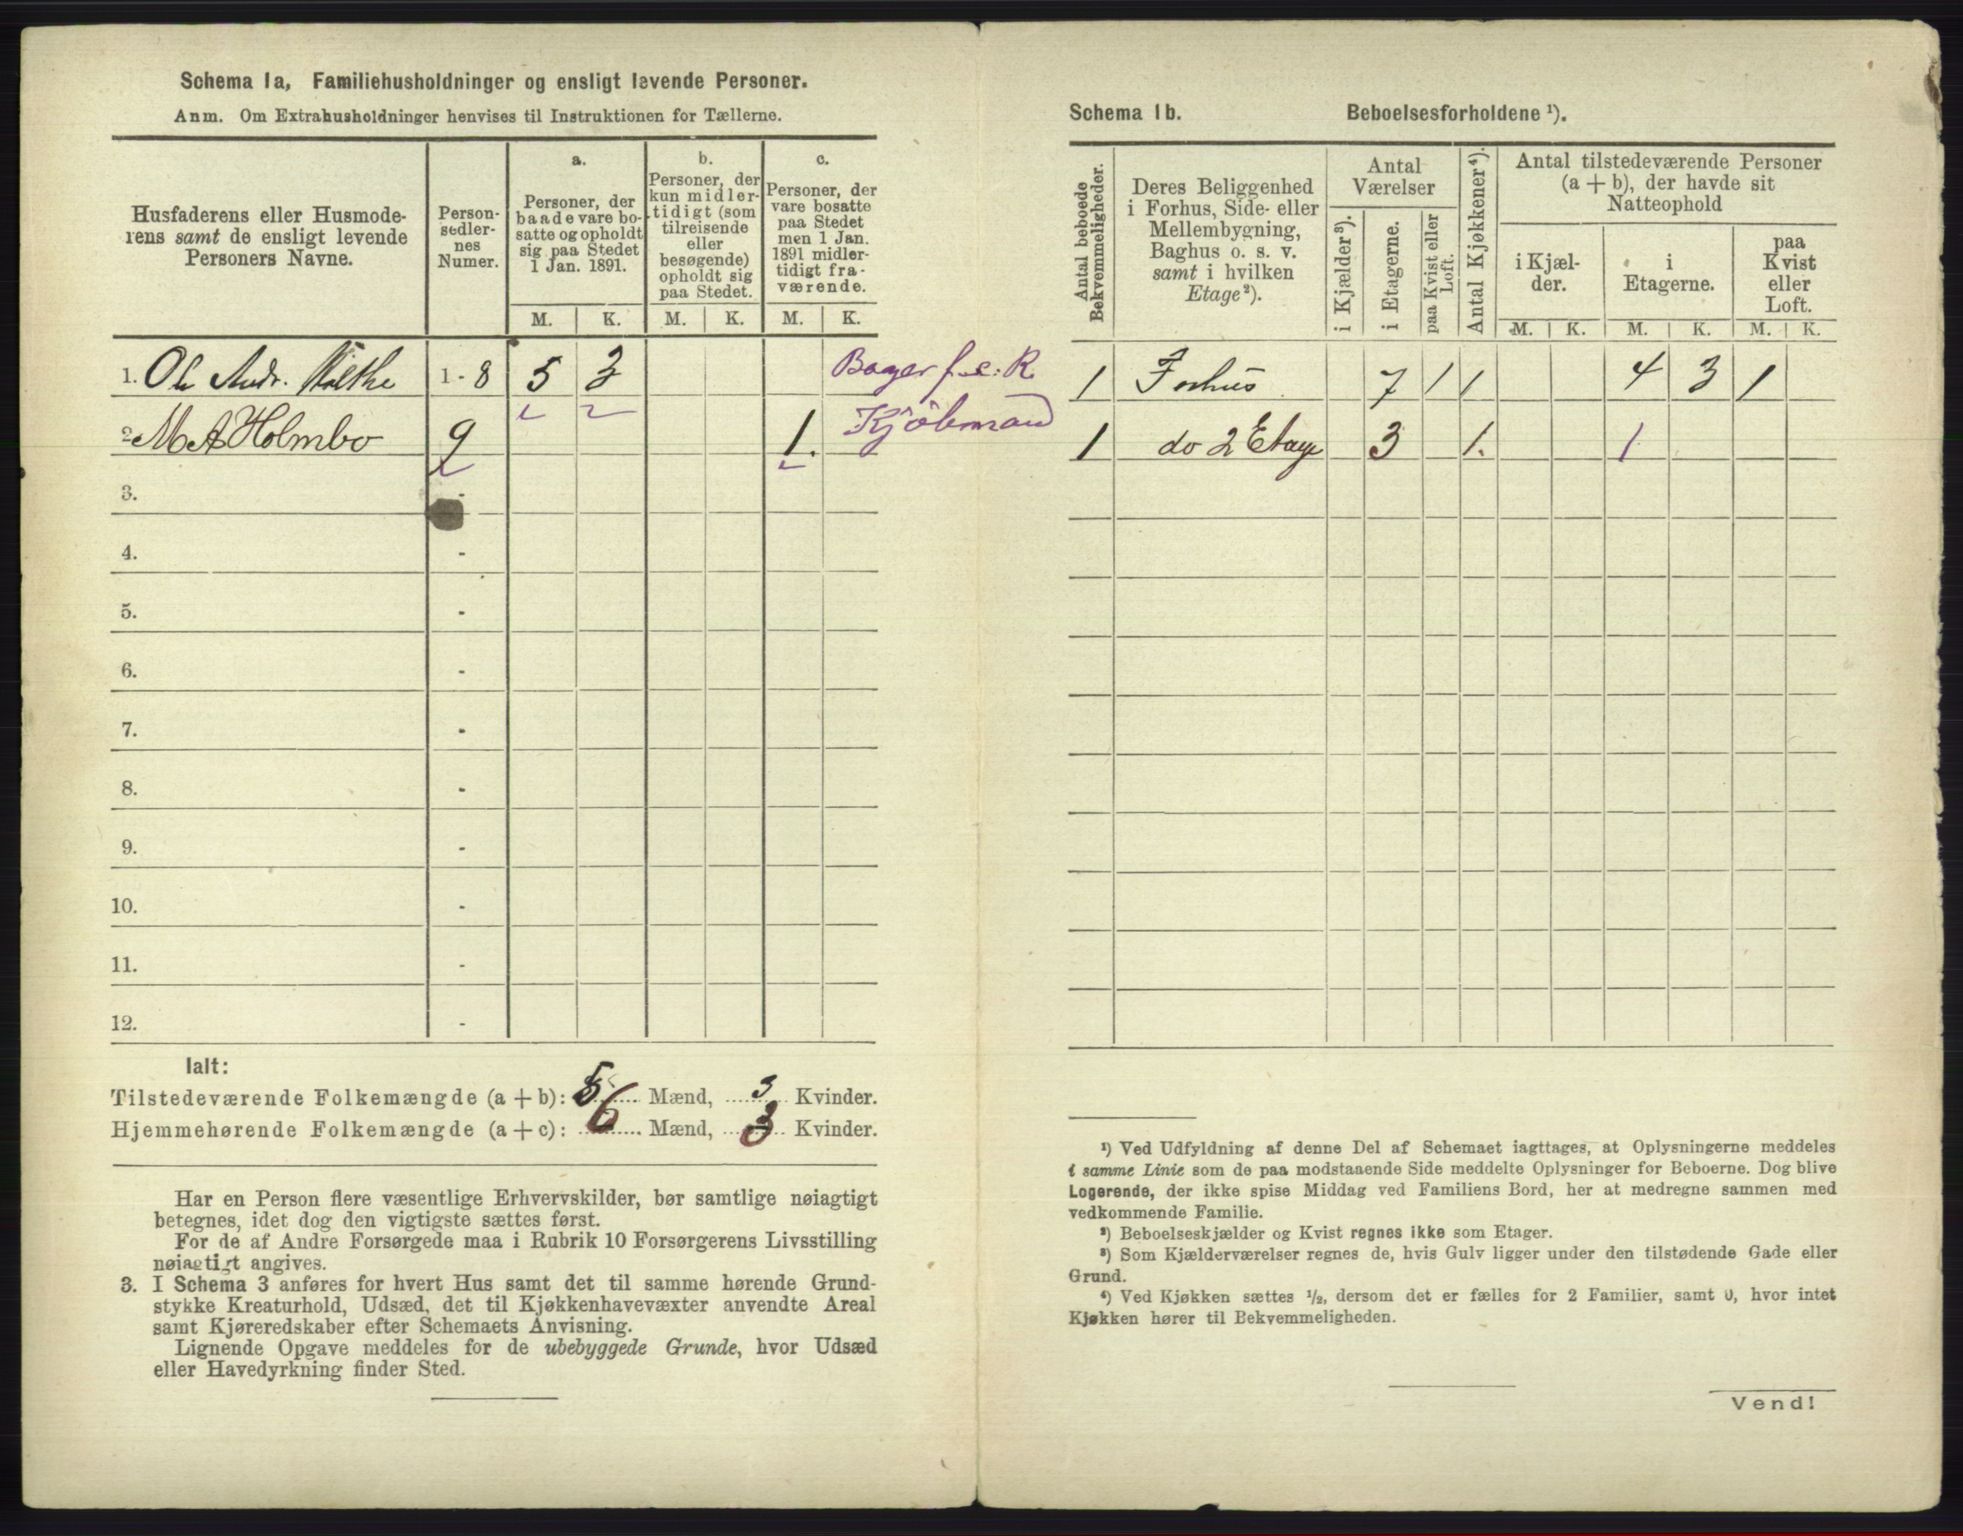 Schema 1a, Familiehusholdninger og ensligt levende Personer.
Anm. Om Extrahusholdninger henvises til Instruktionen for Tællerne.
Husfaderens eller Husmode-
rens samt de ensligt levende
Personers Navne.
Person-
sedler-
nes
Numer.
a.
Personer, der
baade vare bo-
satte og opholdt
sig paa Stedet
1 Jan. 1891.
b.
Personer, der
kun midler-
tidigt (som
tilreisende
eller
besøgende)
opholdt sig
paa Stedet.
c.
Personer, der
vare bosatte
paa Stedet
men 1 Jan.
1891 midler-
tidigt fra-
værende.
M. K. M. K. M. K.
1. Ole Andr. 1 - 8 5 3 Bager f. e. R.
2. M A Holmbo 9 1. Kjöbmand
3. -
4. -
5. -
6. -
7. -
8. -
9. -
10. -
11. -
12. -
Ialt:
Tilstedeværende Folkemængde (a + b): 5 Mænd, 3 Kvinder.
Hjemmehørende Folkemængde (a + c): 6 Mænd, 3 Kvinder.
Har en Person flere væsentlige Erhvervskilder, bør samtlige nøiagtigt
betegnes, idet dog den vigtigste sættes først.
For de af Andre Forsørgede maa i Rubrik 10 Forsørgerens Livsstilling
nøiagtigt angives.
3. I Schema 3 anføres for hvert Hus samt det til samme hørende Grund-
stykke Kreaturhold, Udsæd, det til Kjøkkenhavevæxter anvendte Areal
samt Kjøreredskaber efter Schemaets Anvisning.
Lignende Opgave meddeles for de ubebyggede Grunde, hvor Udsæd
eller Havedyrkning finder Sted.
Schema 1b. Beboelsesforholdene ¹).
Antal beboede
Bekvemmeligheder.
Deres Beliggenhed
i Forhus, Side- eller
Mellembygning,
Baghus o. s. v.
samt i hvilken
Etage²).
Antal
Værelser
i Kjælder³).
i Etagerne.
paa Kvist eller
Loft.
Antal Kjøkkener⁴).
Antal tilstedeværende Personer
(a + b), der havde sit
Natteophold
i Kjæl-
der.
i
Etagerne.
paa
Kvist
eller
Loft.
M. K. M. K. M. K.
1 Forhus 7 1 1 4 3 1
1 do 2 Etage 3 1. 1
¹) Ved Udfyldning af denne Del af Schemaet iagttages, at Oplysningerne meddeles
i samme Linie som de paa modstaaende Side meddelte Oplysninger for Beboerne. Dog blive
Logerende, der ikke spise Middag ved Familiens Bord, her at medregne sammen med
vedkommende Familie.
²) Beboelseskjælder og Kvist regnes ikke som Etager.
³) Som Kjælderværelser regnes de, hvis Gulv ligger under den tilstødende Gade eller
Grund.
⁴) Ved Kjøkken sættes ½, dersom det er fælles for 2 Familier, samt 0, hvor intet
Kjøkken hører til Bekvemmeligheden.
Vend!